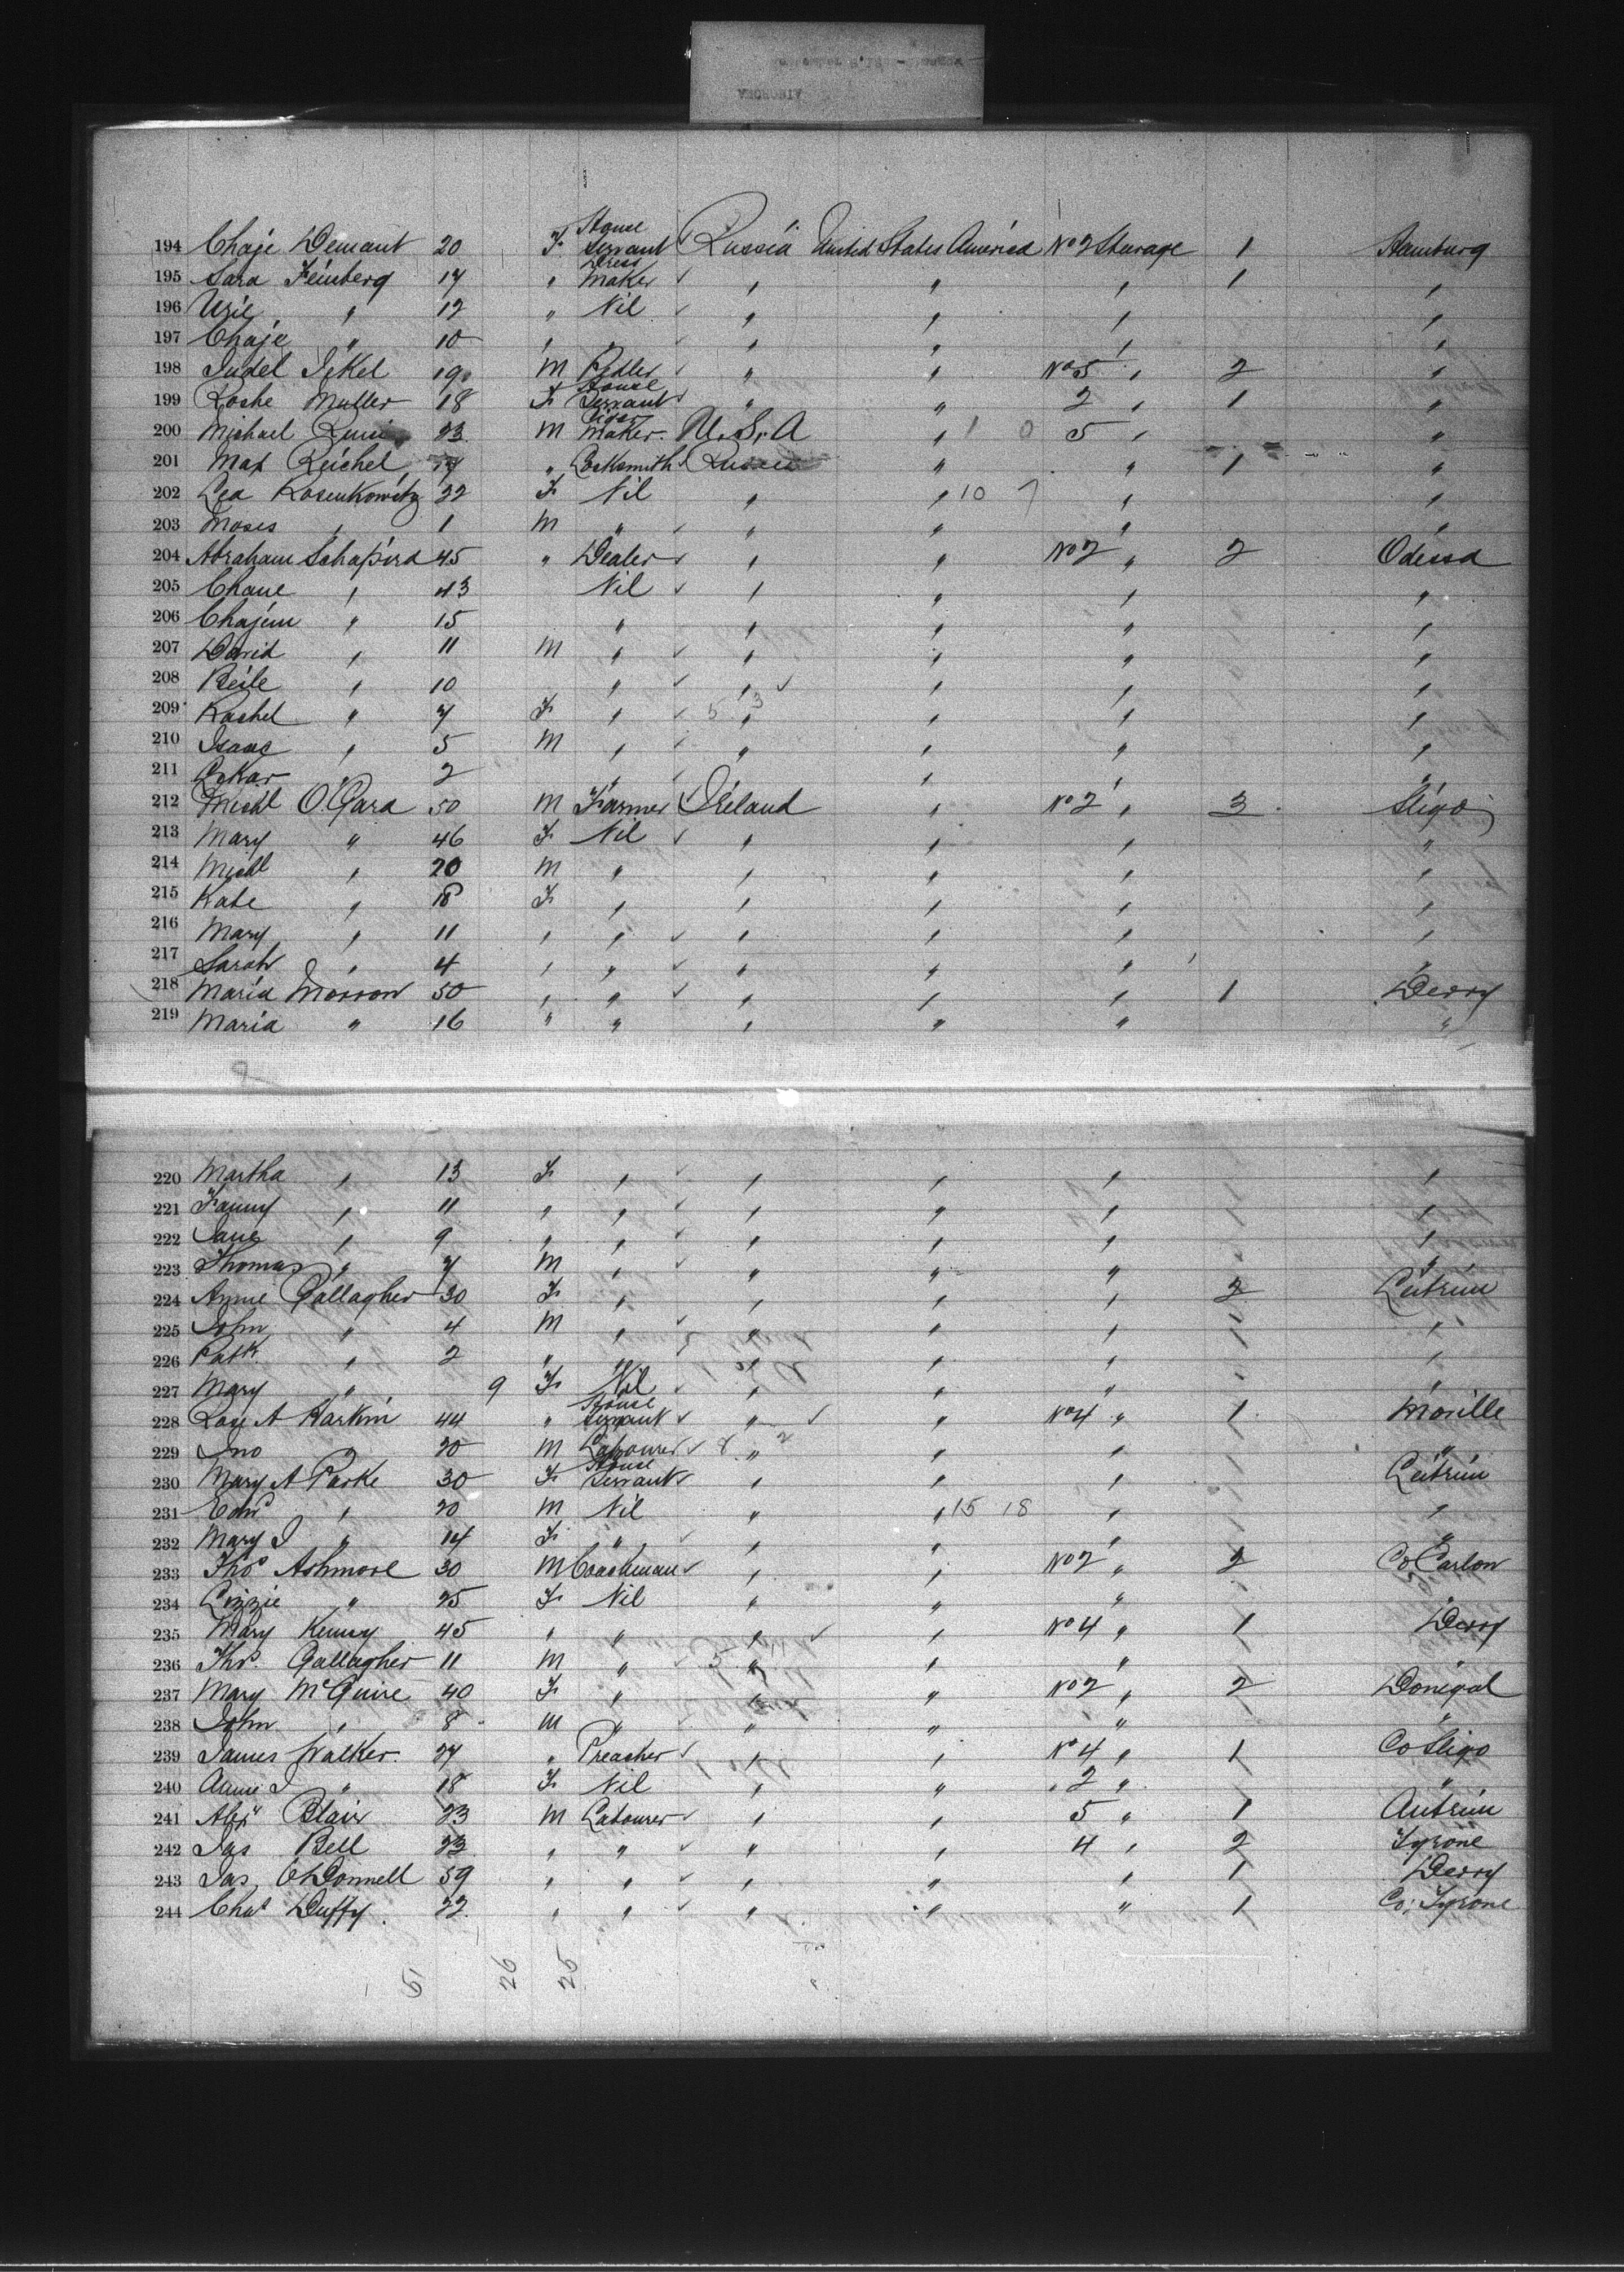 194 Chaje Demant 20 F House Servant Russia United States America No 2 Sterage 1 Hamburg
195 Sara Feinberg 17 " Dress Maker " " " 1 "
196 Usie " 12 " Nil " " " "
197 Chaje " 10 " " " " " "
198 Judel Jekel 19 M Pedler " " No 5 " 2 "
199 Roche Muller 18 F House Servant " " 2 " 1 "
200 Michael 23 M Cigar Maker U.S.A " 1 0 5 " "
201 Max Reichel " Locksmith Russia " " 1 "
202 Lea Rosenkowitz 22 F Nil " " 10 7 " "
203 Moses " 1 M " " " " "
204 Abraham Schapira 45 " Dealer " " No 2 " 2 Odessa
205 Chane " 43 Nil " " " "
206 Chajem " 15 " " " " "
207 David " 11 M " " " " "
208 Beile " 10 " " " " "
209 Rachel " 7 F " 5 3 " " " "
210 Isaac " 5 M " " " " "
211 Oskar 2 " " " "
212 Michl O'Gara 50 M Farmer Ireland " No 2 " 3 Sligo
213 Mary " 46 F Nil " " " "
214 Michl " 20 M " " " " "
215 Kate " 18 F " " " " "
216 Mary " 11 " " " " " "
217 Sarah " 4 " " " " " "
218 Maria Morrow 50 " " " " " 1 Derry
219 Maria " 16 " " " " " "
220 Martha " 13 F " " " " "
221 Fanny " 11 " " " " " "
222 Jane " 9 " " " " " "
223 Thomas " 7 M " " " " "
224 Annie Gallagher 30 F " " " " 2 Leitrim
225 John " 4 M " " " " "
226 Patk " 2 " " " " " "
227 Mary " 9 F Nil " " " "
228 Rose A Harkin 44 " House Servant " " No 4 " 1 Moville
229 Jno 20 M Labourer " " " "
230 Mary A Parke 30 F House Servant " " " Leitrim
231 Edwd " 20 M Nil " " 15 18 " "
232 Mary J " 14 F " " " " "
233 Thos Ashmore 30 M Coachman " " No 2 " 2 Co Carlow
234 Lizzie " 25 F Nil " " "
235 Mary Kenny 45 " " " " No 4 " 1 Derry
236 Thos. Gallagher 11 M " " " "
237 Mary McGuire 40 F " " " No 2 " 2 Donegal
238 John " 8 M " " " " "
239 James Walker 27 " Preacher " " No 4 " 1 Co Sligo
240 Annie J " 18 F Nil " " " 2 " "
241 Alexr Blair 23 M Labourer " " 5 " 1 Antrim
242 Jas Bell 23 " " " " 4 " 2 Tyrone
243 Jas O'Donnell 59 " " " " " 1 Derry
244 Chas Duffy 22 " " " " " 1 Co: Tyrone
26 25